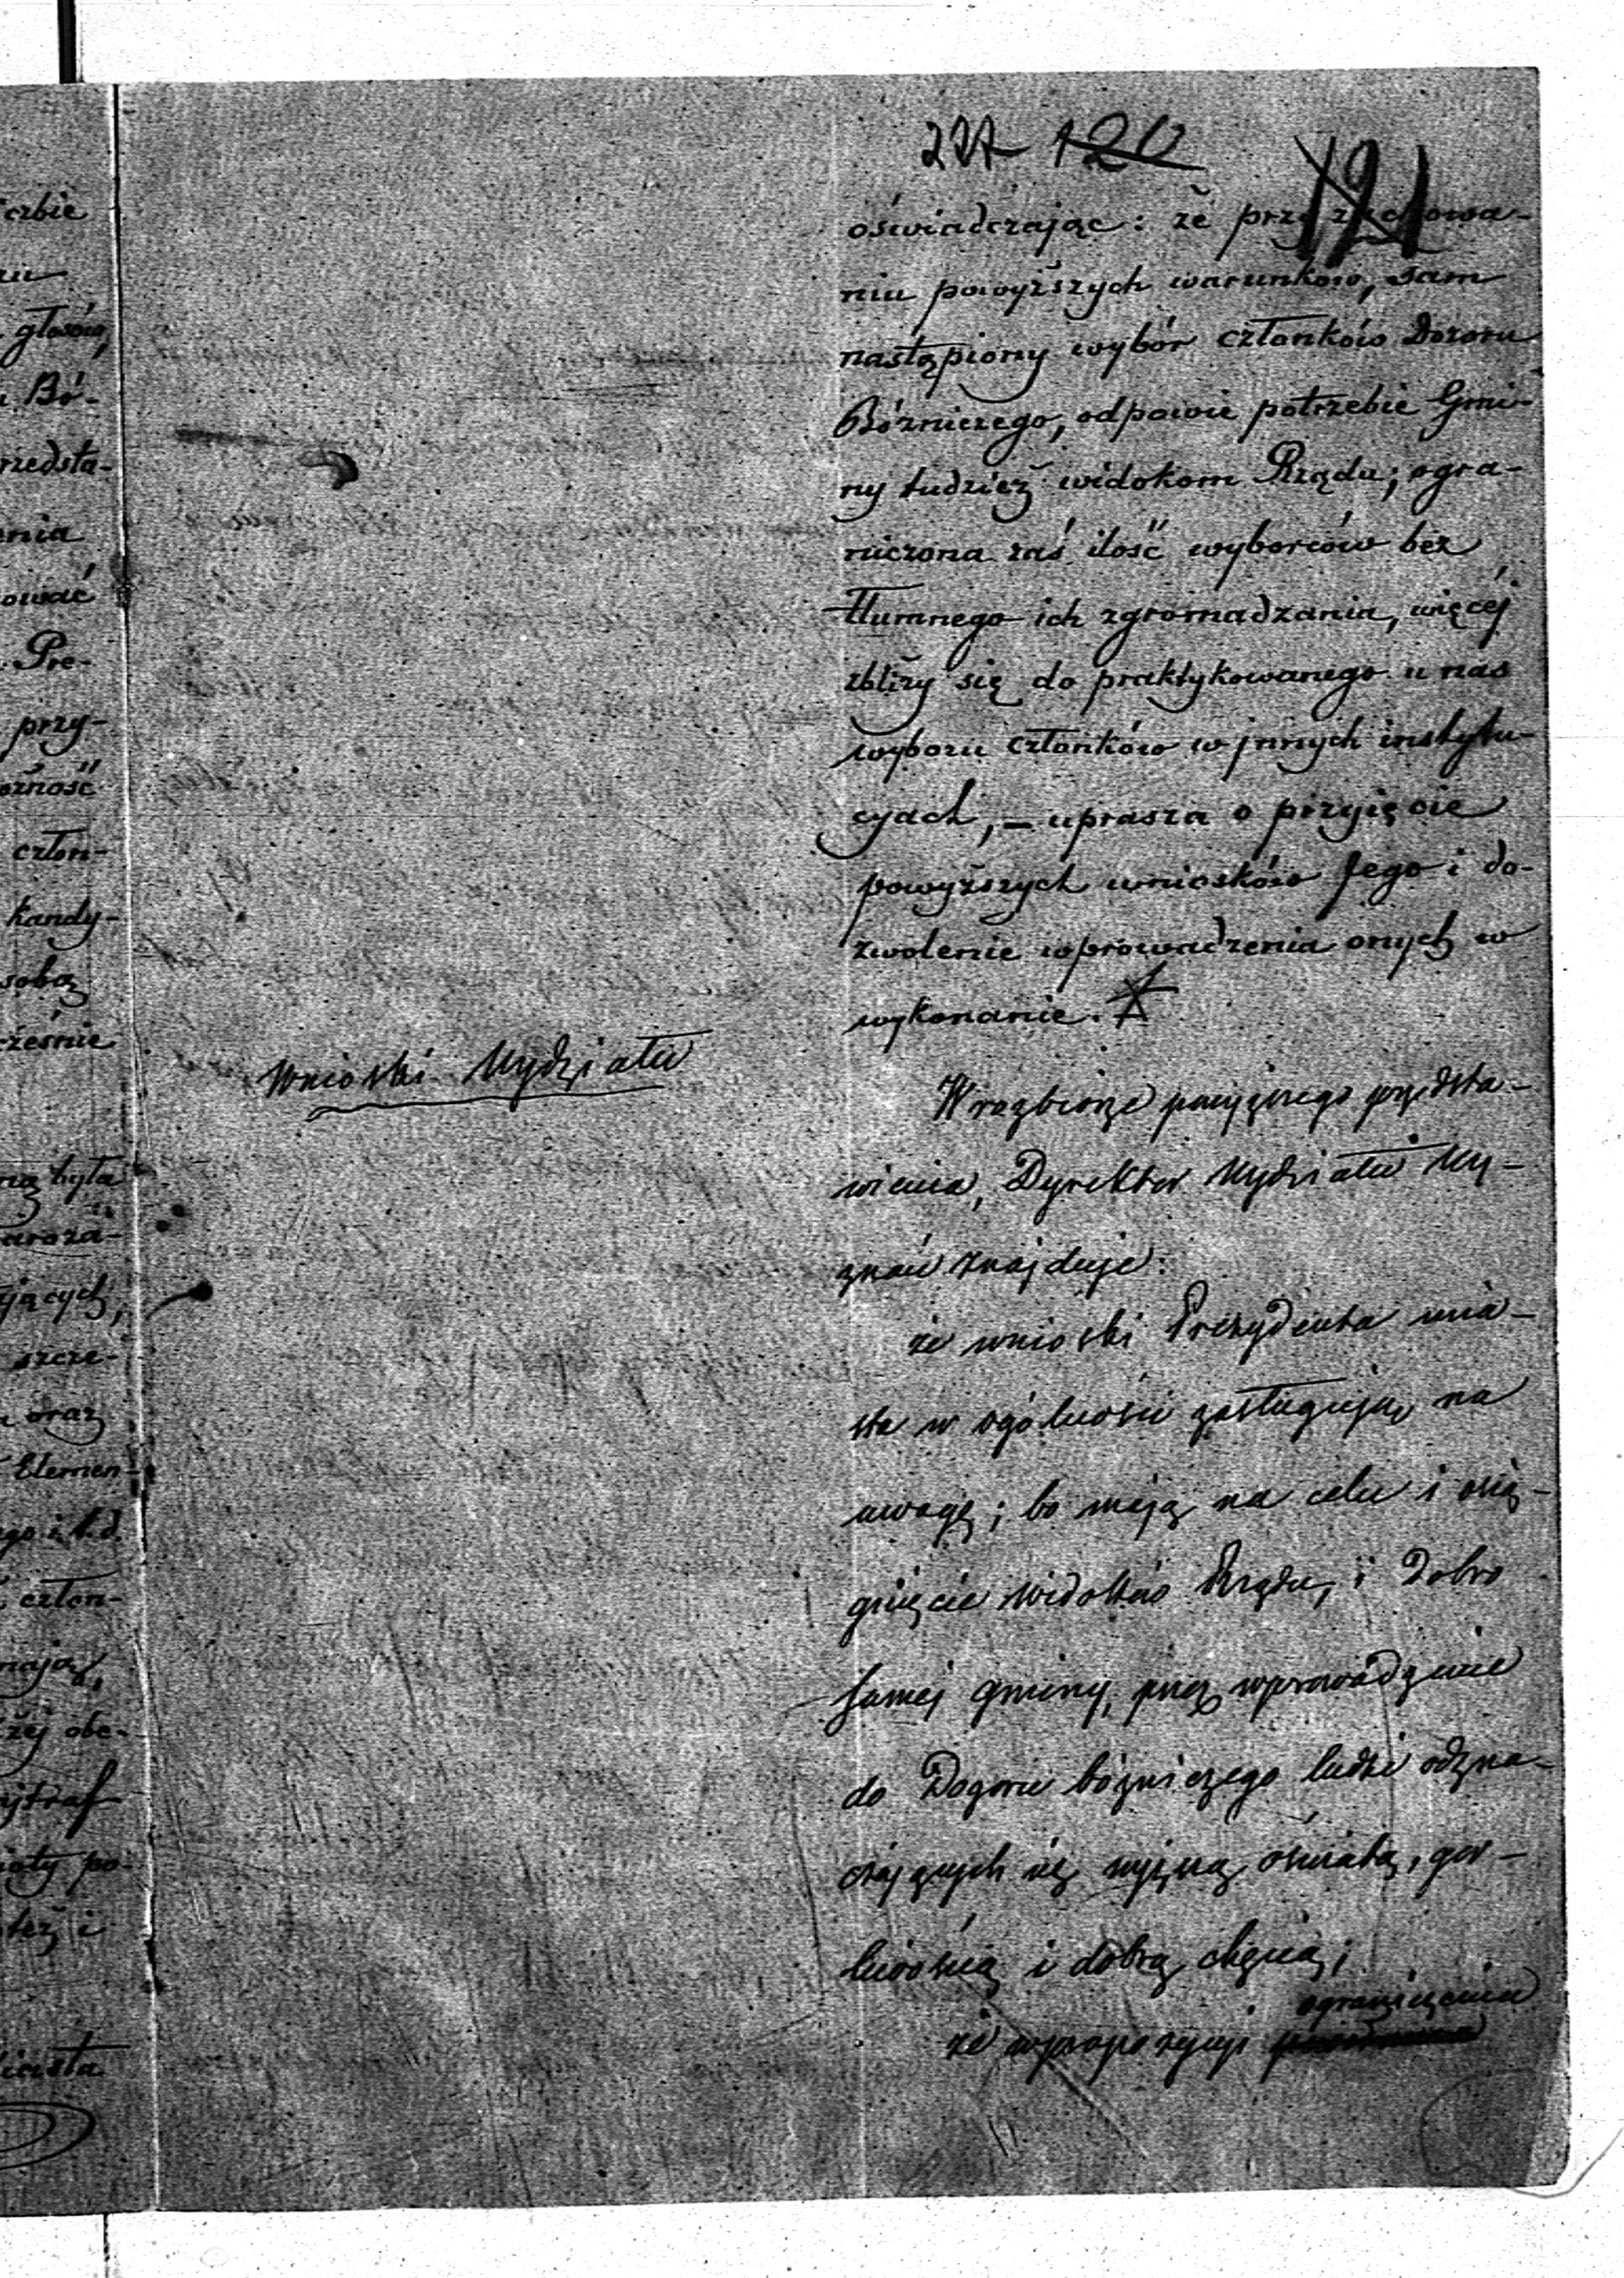 227 120
121
oświadczając: że przy zachowa-
niu powyższych warunków, sam
nastąpiony wybór członków Dozoru
Bóżniczego, odpowie potrzebie Gmi-
ny tudzież widokom Rządu; ogra-
niczona zaś ilość wyborców bez
tłumnego ich zgromadzania, więcej
zbliży się do praktykowanego u nas
wyboru członków w jnnych instytu-
cyach, – uprasza o przyięcie
powyższych wniosków Jego i do-
zwolenie wprowadzenia onych w
wykonanie.
Wnioski Wydziału
W rozbiorze powyższego przedsta-
wienia, Dyrektor Wydziału Wy-
znań znajduje:
że wnioski Prezydenta mia-
sta w ogólności zasługują na
uwagę; bo mają na celu i osią-
gnięcie widoków Rządu, i dobro
samej gminy, przez wprowadzenie
do Dozoru bóżniczego ludzi odzna-
czających się wyższą oświatą, gor-
liwością i dobrą chęcią;
ograniczenia
że w propozycyi
czbie
głosów,
u Bó-
rzedsta-
enia
ować
Pre-
przy-
ożność
człon-
kandy-
sobą
cześnie
ną była
aroza-
jących,
szcze-
oraz
Elemen-
go i t.d.
człon-
mają,
żej obe-
ajtraf
ioty po-
też i
iasta